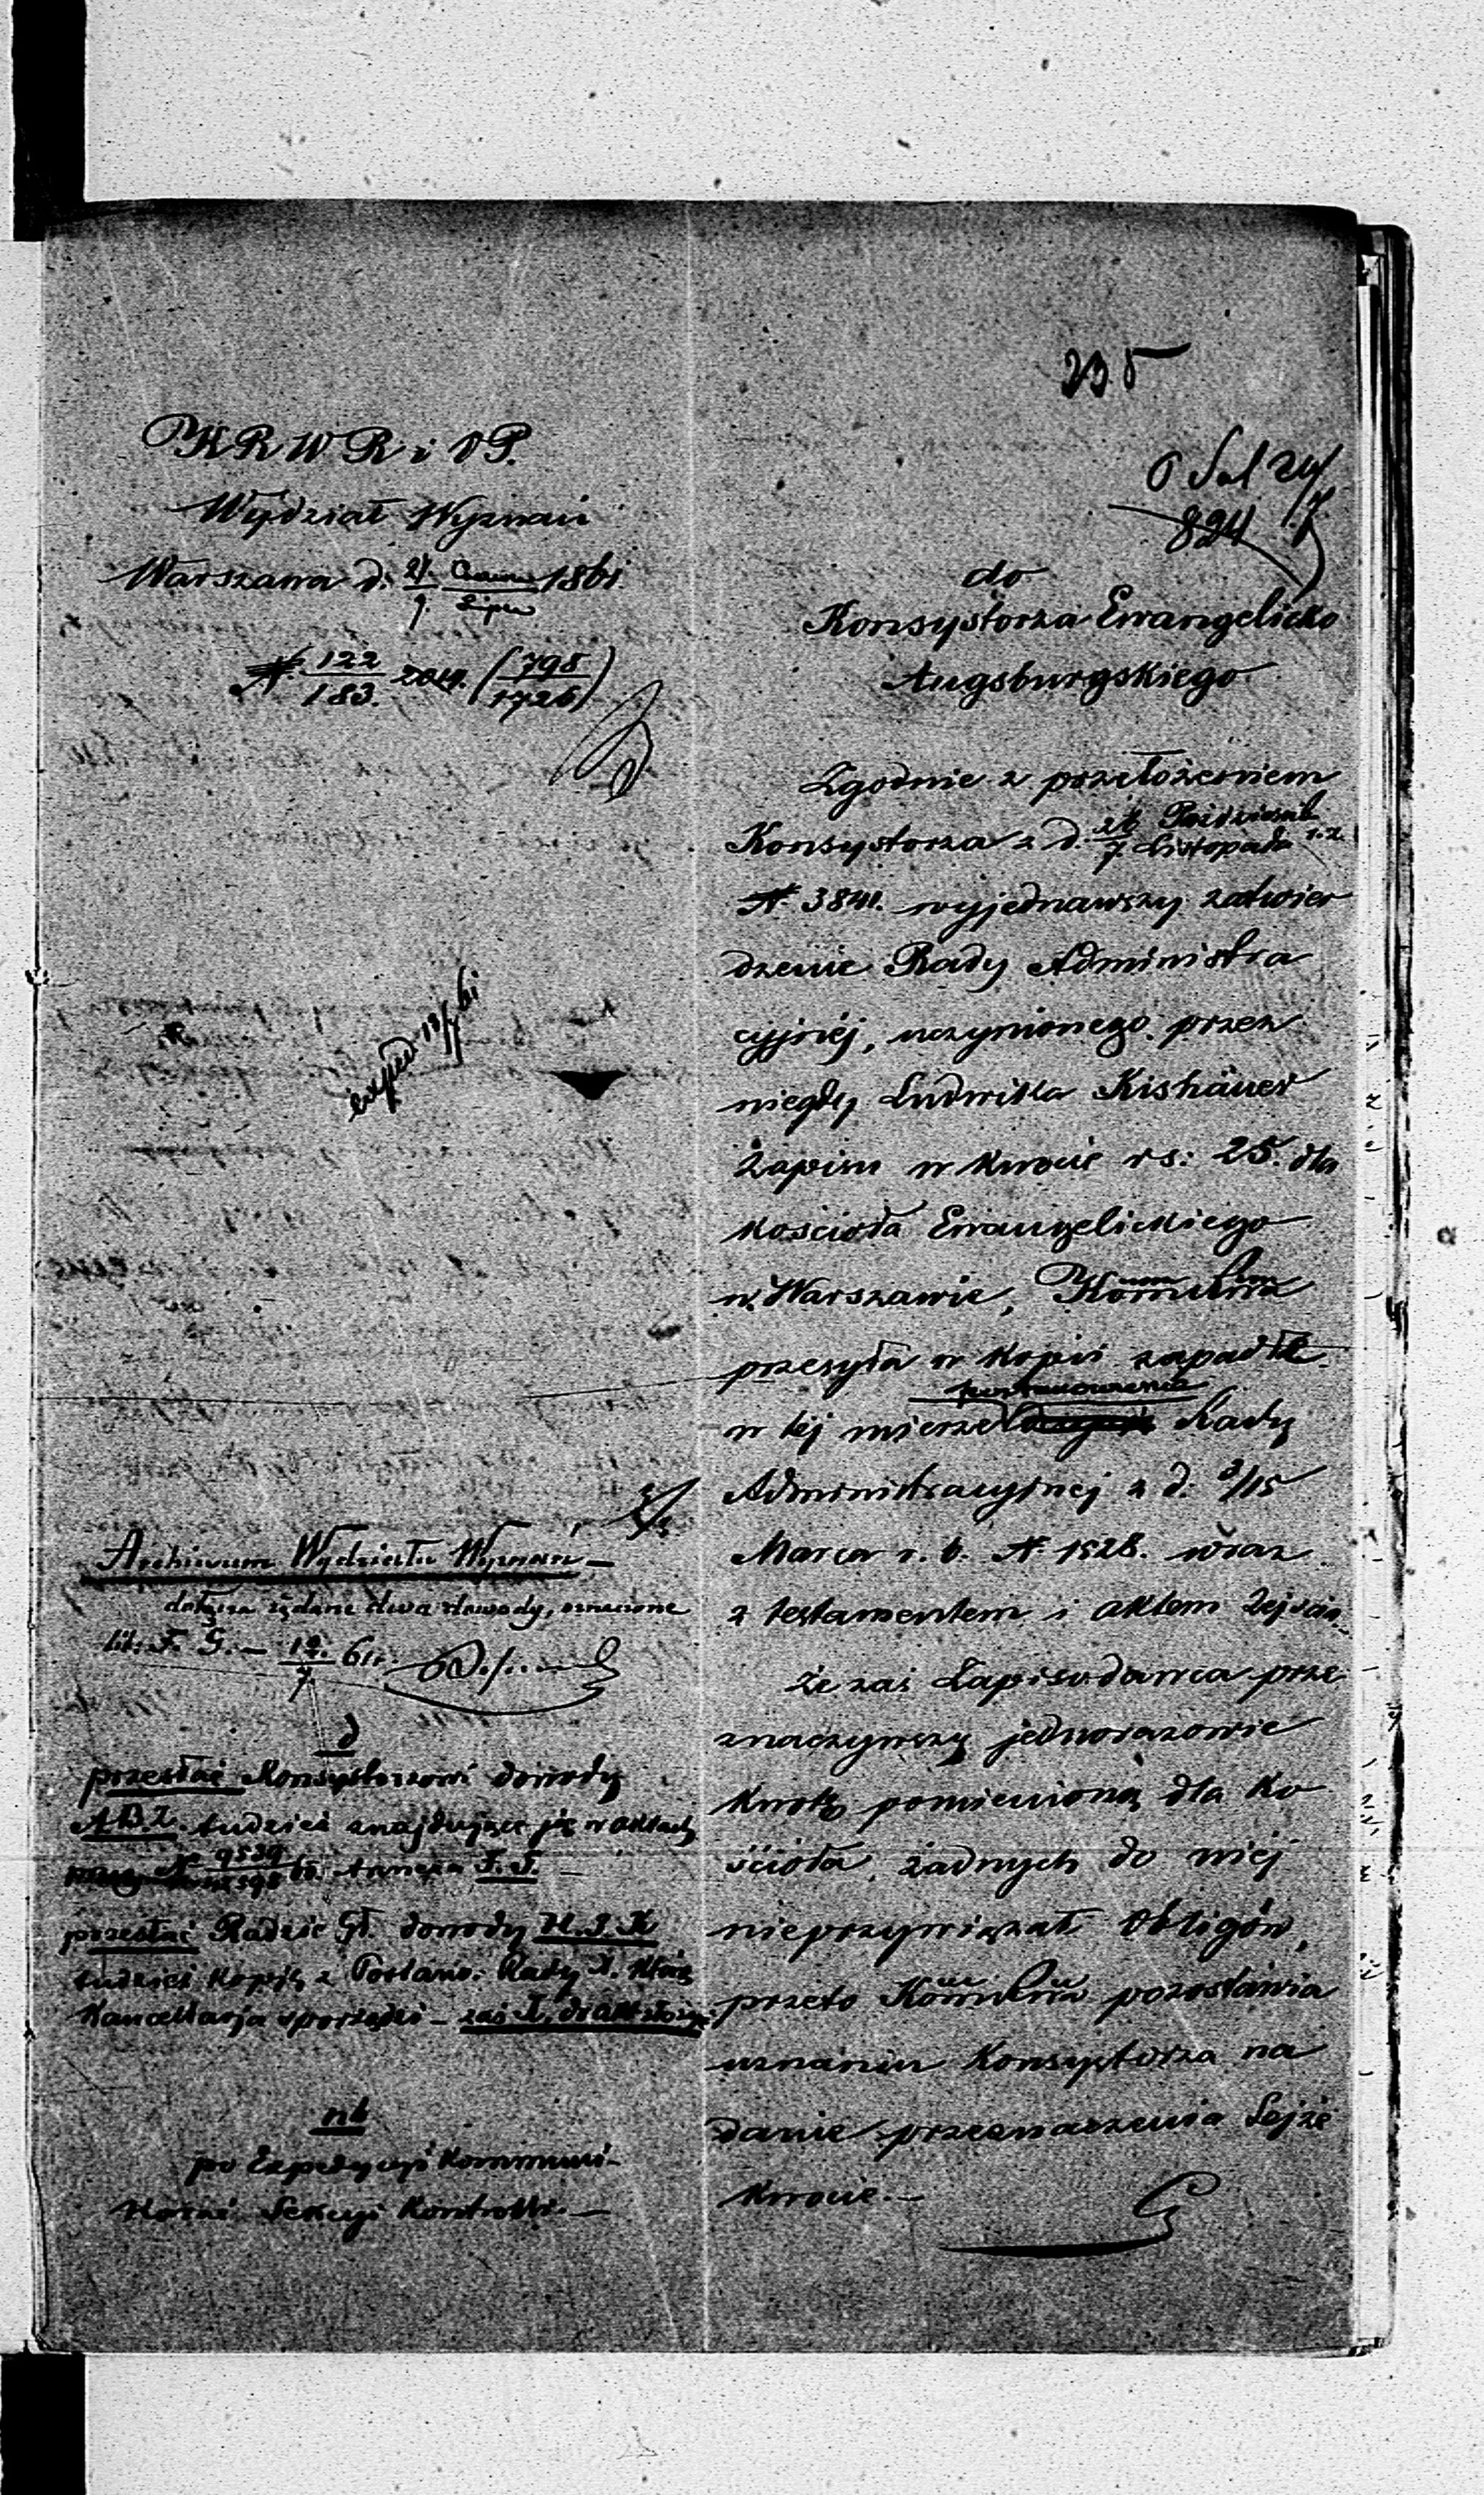 235
KRWR i DP.
Wydział Wyznań
Warszawa d. 21 Czerwca / 9 Lipca 1861.
N. 122/183. (798/1726)
expedd
Archiwum Wydziału Wyznań —
dołącza żądane dwa dowody, oznaczone
lit: F. G. — 12/7 61 r.
d
przesłać Konsystorzowi dowody
A.B.Z. tudzież znajdujące się w aktach
przy N 9539
przesłać Radzie Gł. dowody H.I.K
tudzież kopię z Postano. Rady A. którą
Kancellarja sporządzi —
nb
po Expedycyi Kommuni-
kować Sekcyi Kontrolli. —
824
do
Konsystorza Ewangelicko
Augsburgskiego
Zgodnie z przełożeniem
Konsystorza z d. 26 Paździenik / 7 Listopada r. z.
N. 3841. wyjednawszy zatwier
dzenie Rady Administra
cyjnéj, uczynionego przez
niegdy Ludwika Kishäuer
Zapisu w kwocie rs: 25. dla
kościoła Ewangelickiego
w Warszawie, Kommissa
przesyła w kopii zapadłe
w tej mierze postanowienie Rady
Administracyjnej z d. 3/15
Marca r. b. N. 1528. wraz
z testamentem i aktem Zejścia.
Że zaś Zapisodawca prze
znaczywszy jednorazowie
kwotę pomienioną dla Ko
ścioła, żadnych do niéj
nieprzywiązał Obligów,
przeto Kommissa pozostawia
uznaniu Konsystorza na
danie przeznaczenia tejże
kwocie. —